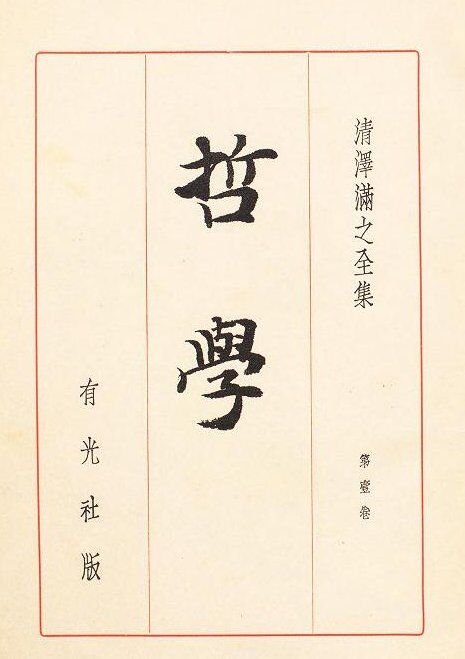 清澤滿之全集
第壹卷
哲學
有光社版